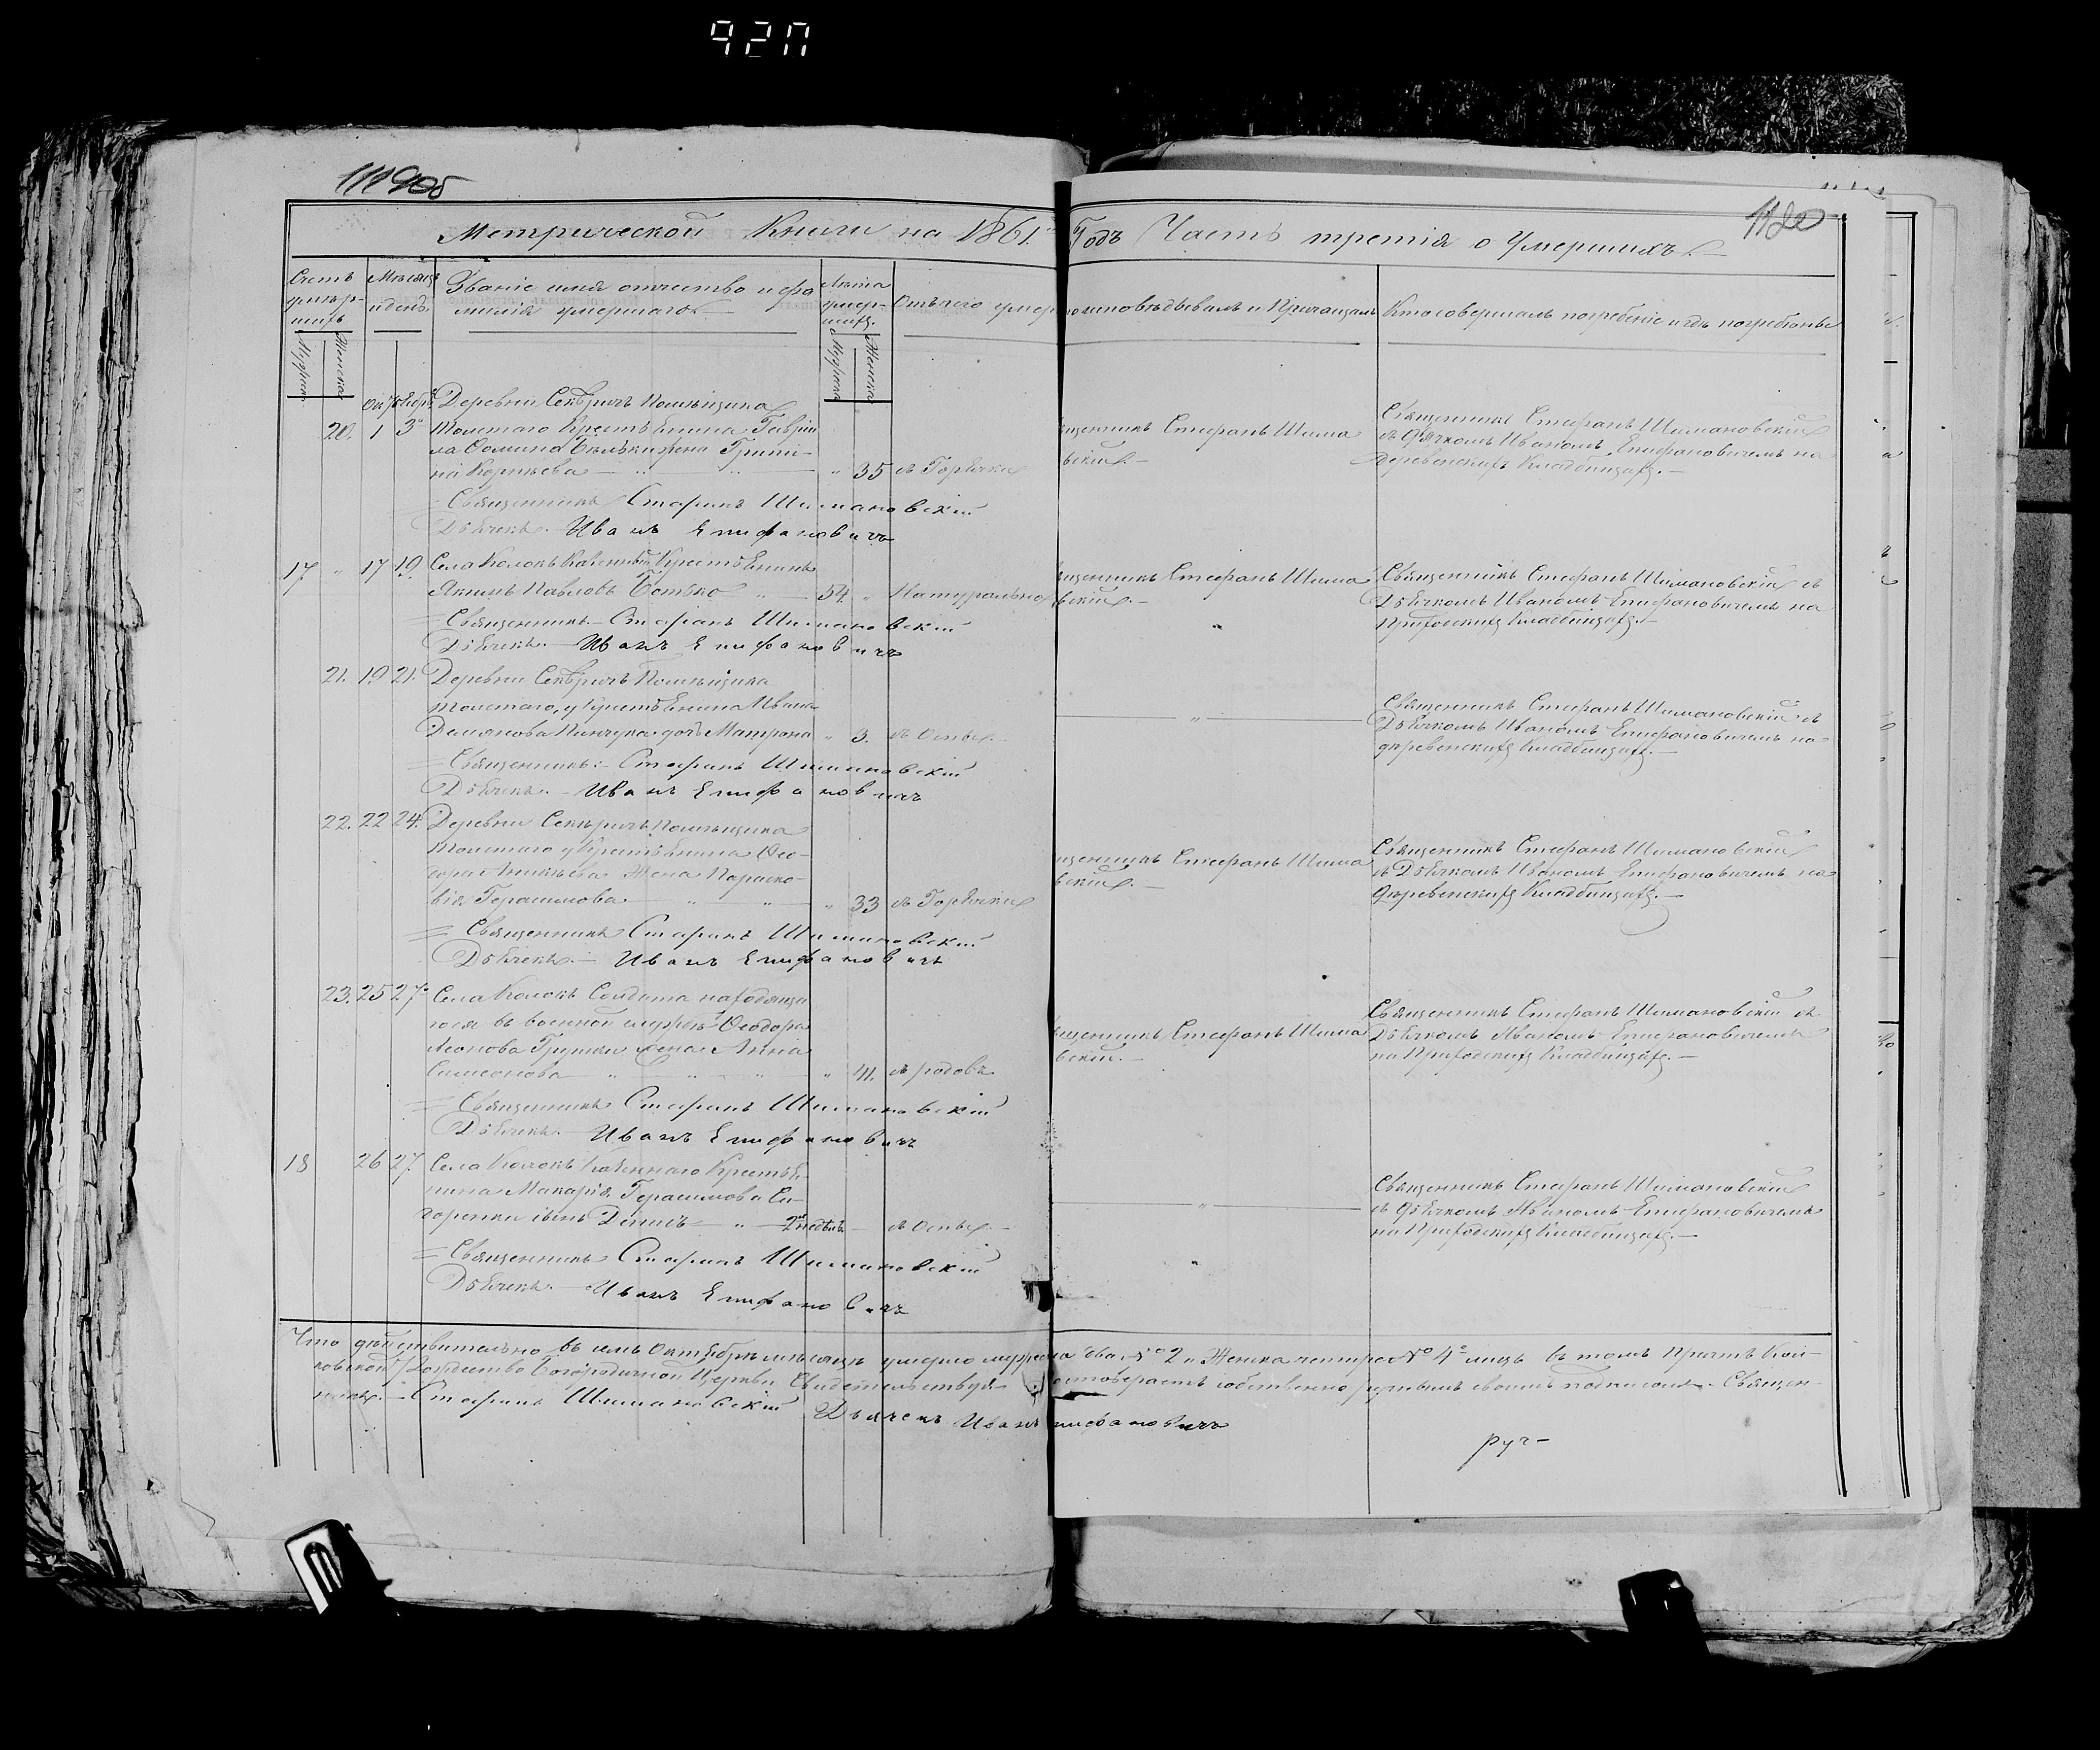 92П
111906
1120
Метрической Книги на 1861й Годъ Часть третія о Умершихъ.
Счетъ умер-шихъ
Мужеска
Женска
Мѣсяцъ и день.
Званіе имя отчество и фа
милія умершаго.
Лѣта умер-шихъ.
Мужеска
Женска
Отъ чего умер
исповѣдывалъ и Причащалъ
Кто совершалъ погребеніе и гдѣ погребены
Октября
Деревни Секѣричъ Помѣщика
20. 1 3 Толстаго Крестьянина Гаврі
ла Фомина жена
Корнѣева 35 въ Горячки
щенникъ Стефанъ Шима
вскій.
Священникъ Стефанъ Шимановскій
съ Дьячкомъ Иваномъ Епифановичемъ на
деревенскихъ Кладбищахъ.
Священникъ Стефанъ Шимановскій
Дьячекъ. Иванъ Епифановичъ
17 " 17 19 Села Колокъ Казенный Крестьянинъ
Якимъ Павловъ Ботько 54 " Натурально
щенникъ Стефанъ Шима
вскій.
Священникъ Стефанъ Шимановскій съ
Дьячкомъ Иваномъ Епифановичемъ на
Приходскихъ Кладбищахъ.
Священникъ. Стефанъ Шимановскій
Дьячекъ. Иванъ Епифановичъ
21. 19 21. Деревни Секѣричъ Помѣщика
Толстаго, у Крестьянина Ивана
Демянова Пинчука дочь Матрона " 3. въ Оспы.
Священникъ Стефанъ Шимановскій съ
Дьячкомъ Иваномъ Епифановичемъ на
деревенскихъ Кладбищахъ.
Священникъ: Стефанъ Шимановскій
Дьячекъ. Иванъ Епифановичъ
22. 22 24. Деревни Секѣричъ Помѣщика
Толстаго у Крестьянина Ѳео-
дора жена Параске-
віа Герасимова " 33 въ Горячки
щенникъ Стефанъ Шима
вскій.
Священникъ Стефанъ Шимановскій
съ Дьячкомъ Иваномъ Епифановичемъ на
деревенскихъ Кладбищахъ.
Священникъ Стефанъ Шимановскій
Дьячекъ. Иванъ Епифановичъ
23. 25 27. Села Колокъ Солдата находяща
гося въ военной службѣ Ѳеодора
Леонова жена Анна
Симеонова " 41. въ родовъ
щенникъ Стефанъ Шима
вскій.
Священникъ Стефанъ Шимановскій съ
Дьячкомъ Иваномъ Епифановичемъ
на Приходскихъ Кладбищахъ.
Священникъ Стефанъ Шимановскій
Дьячекъ. Иванъ Епифановичъ
18 26 27. Села Колокъ Казеннаго Крестья
нина Макарія Герасимова Си-
горенки сынъ Денисъ " 2 недѣль въ Оспы.
Священникъ Стефанъ Шимановскій
съ Дьячкомъ Иваномъ Епифановичемъ
на Приходскихъ Кладбищахъ.
Священникъ Стефанъ Шимановскій
Дьячекъ. Иванъ Епифановичъ
Что дѣйствительно въ семъ Октябрѣ мѣсяцѣ умерло мужеска два № 2 и Женска четыре № 4 лицъ въ томъ Причтъ Кол-
ковской Рождество Богородичной Церкви Свидетельствуя достоверность собственно ручнымъ своимъ подписомъ. Священ-
никъ. Стефанъ Шимановскій Дьячекъ Иванъ Епифановичъ
руч-